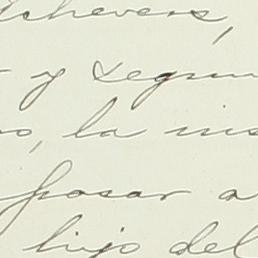 chevers,
y según
o, la mis
posar a
hijo del